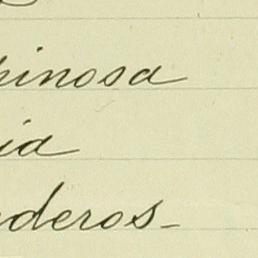 pinosa
ia
nderos